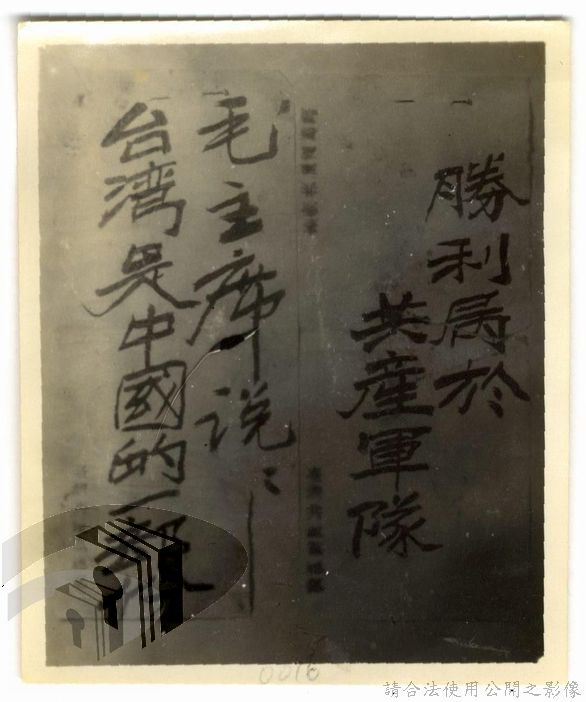 勝利属於
共產軍隊
毛主席说：
台湾是中國的一部
0016
請合法使用公開之影像